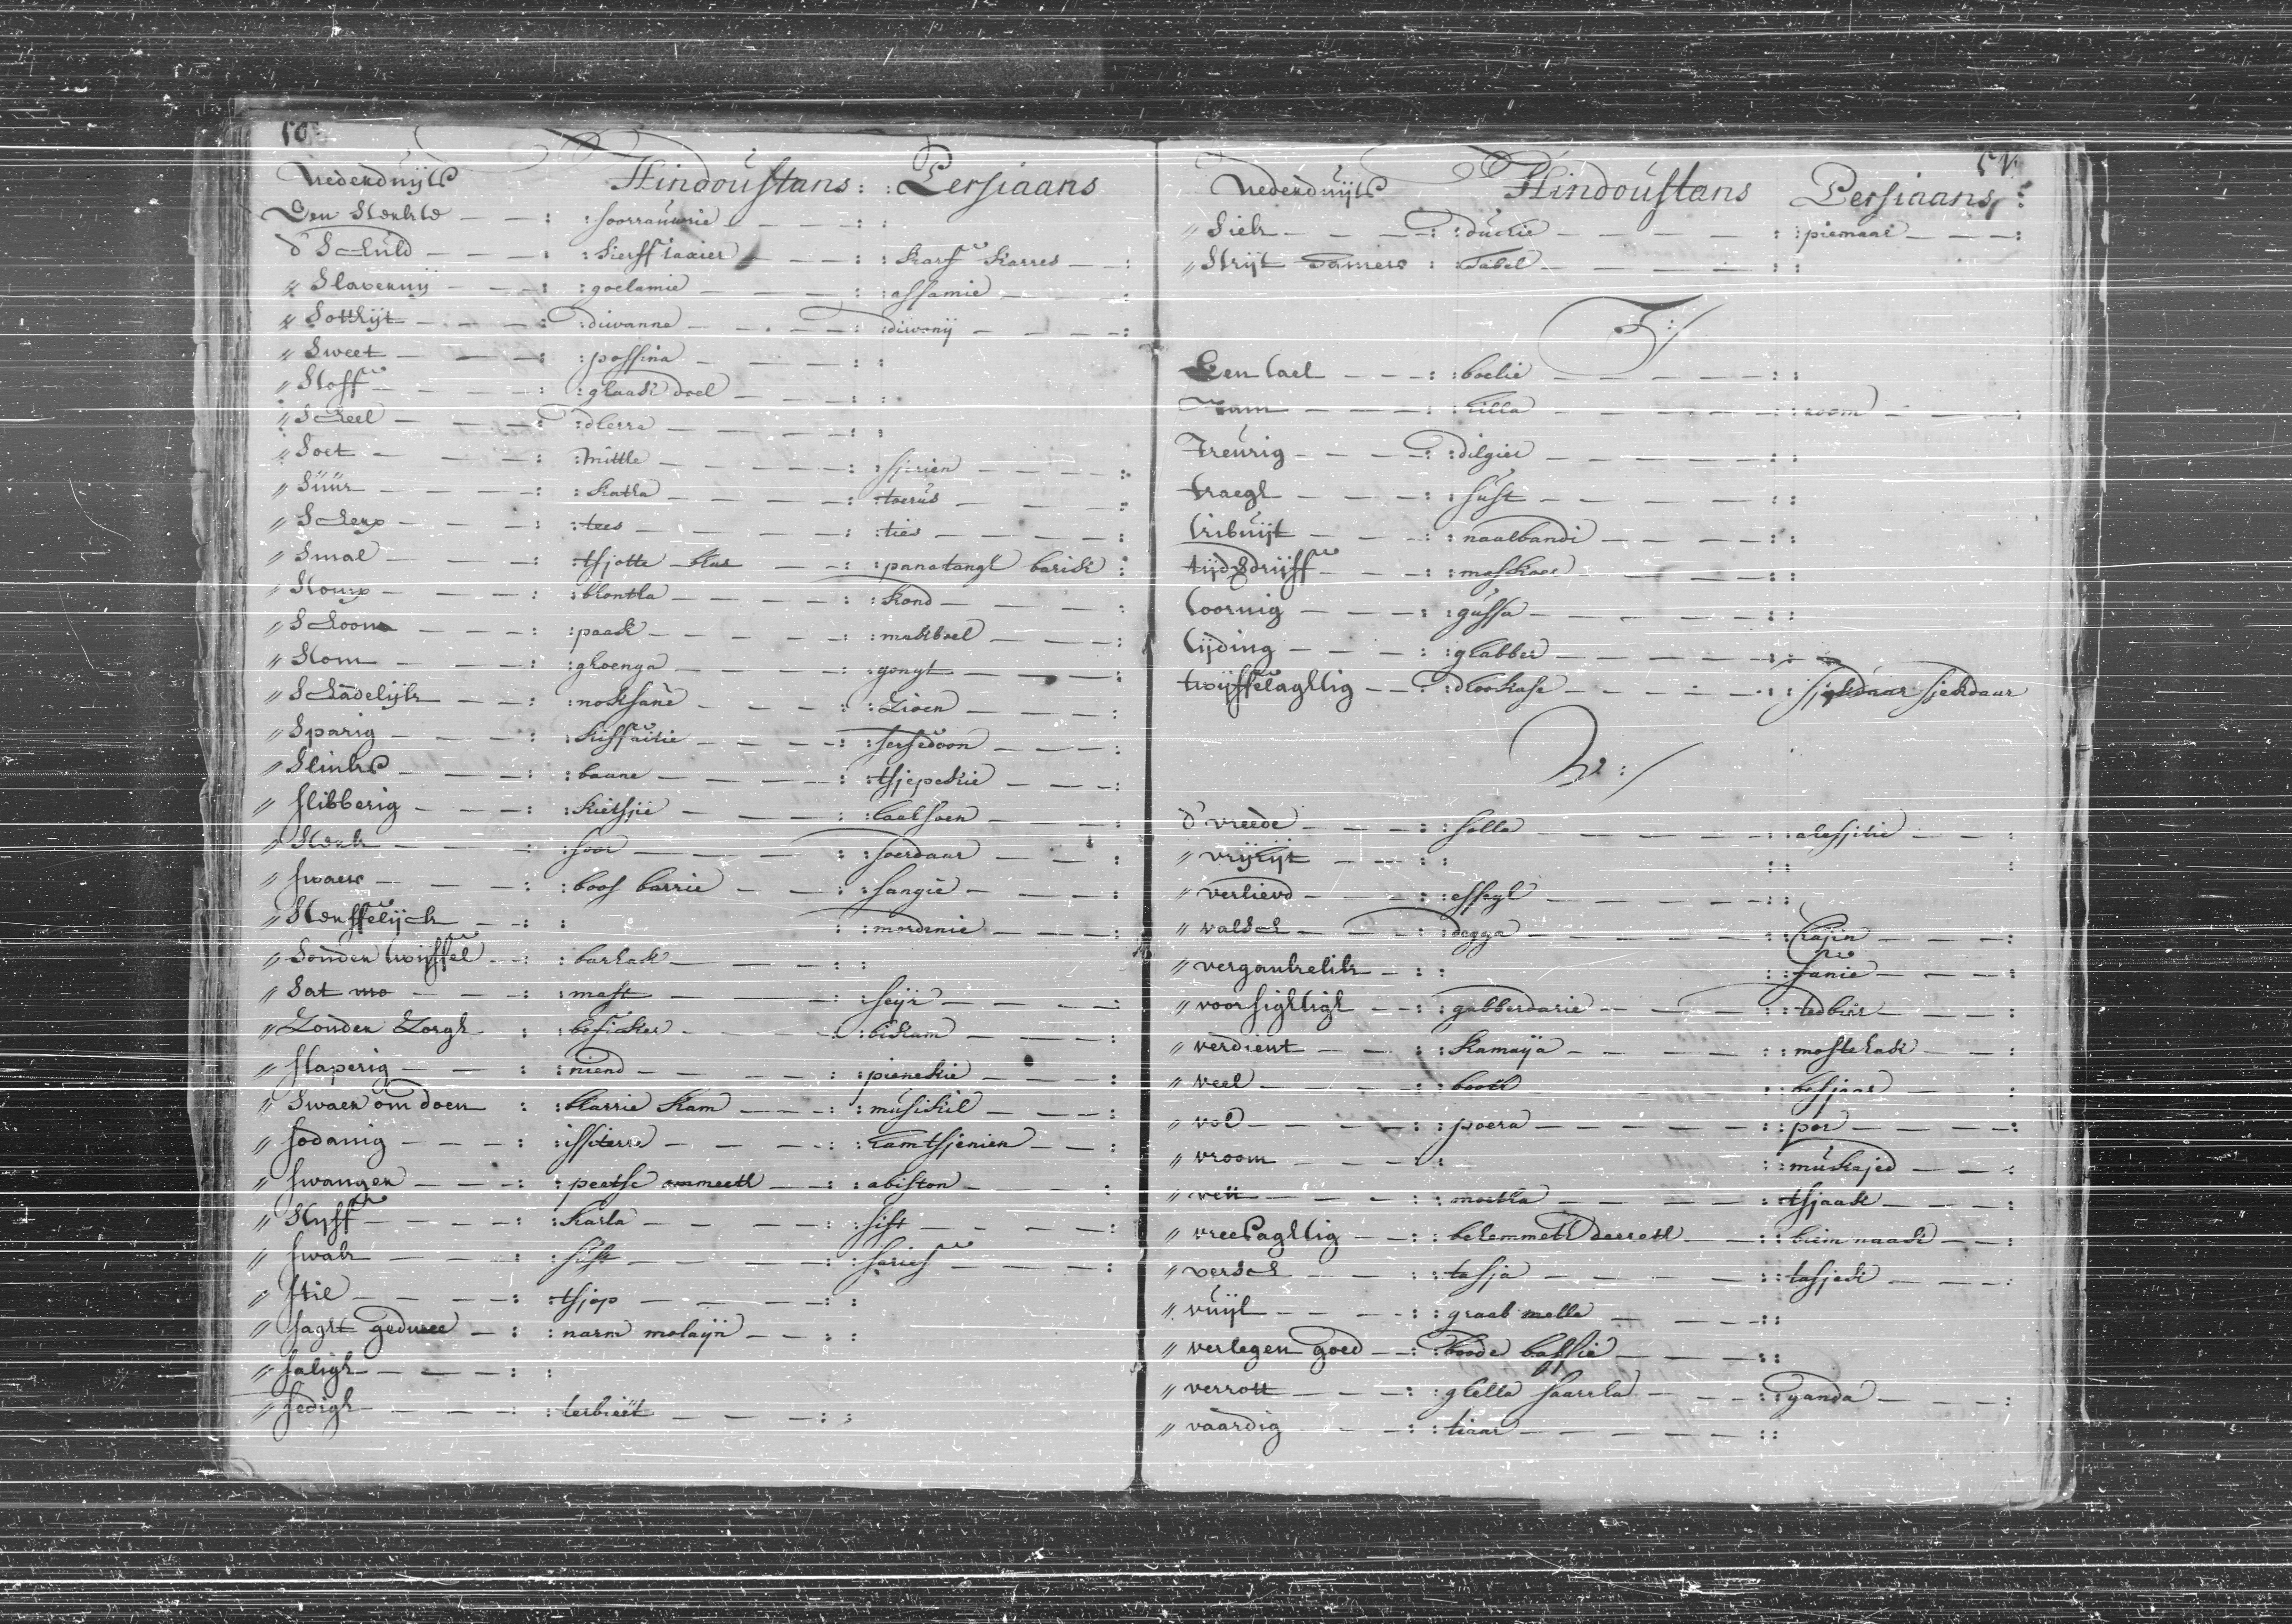 50
Nederduijts Hindoustans : : Persiaans
Een Sterkte — — : : soorrauwrie — — — : :
d' Schuld — — — : : kierff taxier — — : : karf karres — — :
" Slavernij — — — : : goelamie — — — : : assamie — — — :
" Sottheijt — — — : : diwanna — — — : : diwonij — — — :
" Sweet — — — : : possina — — — : :
" Stoff — — — : : ghaak doel — — — : :
" Scheel — — — : : dherra — — — : :
" Soet — — — : : mittle — — — : : sjerien — — — :
" Súúr — — — : : katha — — — : : toerús — — — :
" Scherp — — — : : tees — — — : : ties — — — :
" Smal — — — : : tsjotte — — — : : panatangh barick :
" Stomp — — — : : bhontha — — — : : kond — — — :
" Schoon — — — : : paak — — — : : makboel — — — :
" Stom — — — : : ghoenga — — — : : gongh — — — :
" Schadelijk — — : : noksane — — — : : Zioen — — — :
" Sparig — — — : : kiffaitie — — — : : sersedoon — — — :
" Slinks — — — : : baane — — — : : tsjepekie — — — :
" slibberig — — — : : kietsjie — — — : : laalsoen — — — :
" Sterk — — — : : soor — — — : : soerdaar — — — :
" swaer — — — : : boos barrie — — : : sangie — — — :
" Sterffelijck — — : : : : mordenie — — — :
" Sonder twijffel — : : barhak — — — : :
" Sat — — — : : mast — — — : : seijr — — — :
" Zonder Zorgh : : beficker — — — : : bikam — — — :
" slaperig — — — : : niend — — — : : pienekie — — — :
" Swaer om doen : : bharrie kam — — : : músikil — — — :
" sodanig — — — : : issiterre — — — : : hamtsjenien — — :
" swanger — — — : : peetse ommeeth — — : : abiston — — — :
" Styff — — — : : karla — — — : : sift — — — :
" swak — — — : : súst — — — : : sarief — — — :
" stil — — — : : tsjop — — — : :
" sagt geduee — : : narm molaijn — — : :
" saligh — — — : :
" sedigh — — — : : terbieët — — — : :
51
Nederduijts Hindoustans Persiaans :
" Siek — — — : : duckie — — — : : piemaar — — — :
" Strijt : : Tabel — — — : :
T:/
Een tael — — — : : boelie — — — : :
— — — : : tilla — — — : : room — — — :
Treurig — — — : : dilgier — — — : :
traegh — — — : : súst — — — : :
tribuijt — — — : : naalbandi — — — : :
tijdsdrijff — — — : : maskari — — — : :
toornig — — — : : gússa — — — : :
tijding — — — : : ghabber — — — : :
twijffelaghtig — — : : dhookase — — — : : sjekdaar sjekdaar
V:/
d' vreede — — — : : solla — — — : : alessjitie — — :
" vrijheijt — — — : : : : :
" verlievd — — — : : essegh — — — : :
" valsch — — — : : degga — — — : : — — — :
" vergankelik — : : : : fanie — — — :
" voorsightigh — — : : gabberdarie — — — : : tedbier — — — :
" verdient — — — : : kamaija — — — : : mostehack — — :
" veel — — — : : booth — — — : : besjaar — — — :
" vol — — — : : poera — — — : : por — — — :
" vroom — — — : : : : múkajed — — — :
" vett — — — : : moetha — — — : : tsjaack — — — :
" vreesaghtig — — : : behemmeth deereth — — : : biem naack — — :
" versch — — — : : tasja — — — : : tasjeck — — — :
" vuijl — — — : : graab mella — — — : :
" verlegen goed — — : : boode bassie — — — : :
" verrott — — — : : ghella saarrha — — : : ganda — — — :
" vaardig — — — : : tiaar — — — : :